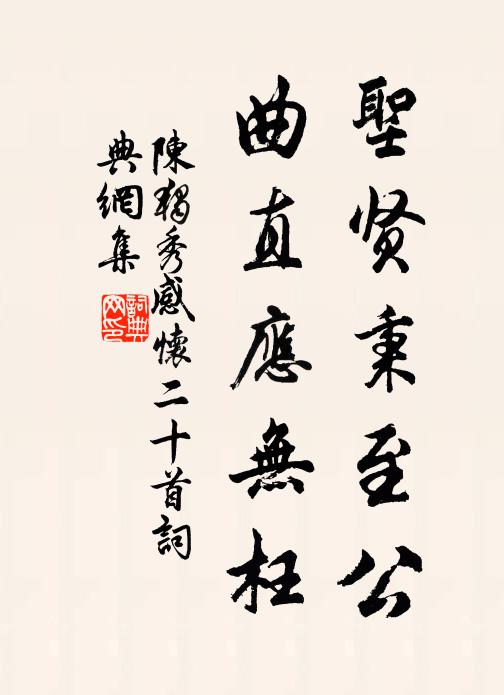 聖贤秉至公
曲直應無枉
陳獨秀感懷二十首詞
典網集
詞典
网印